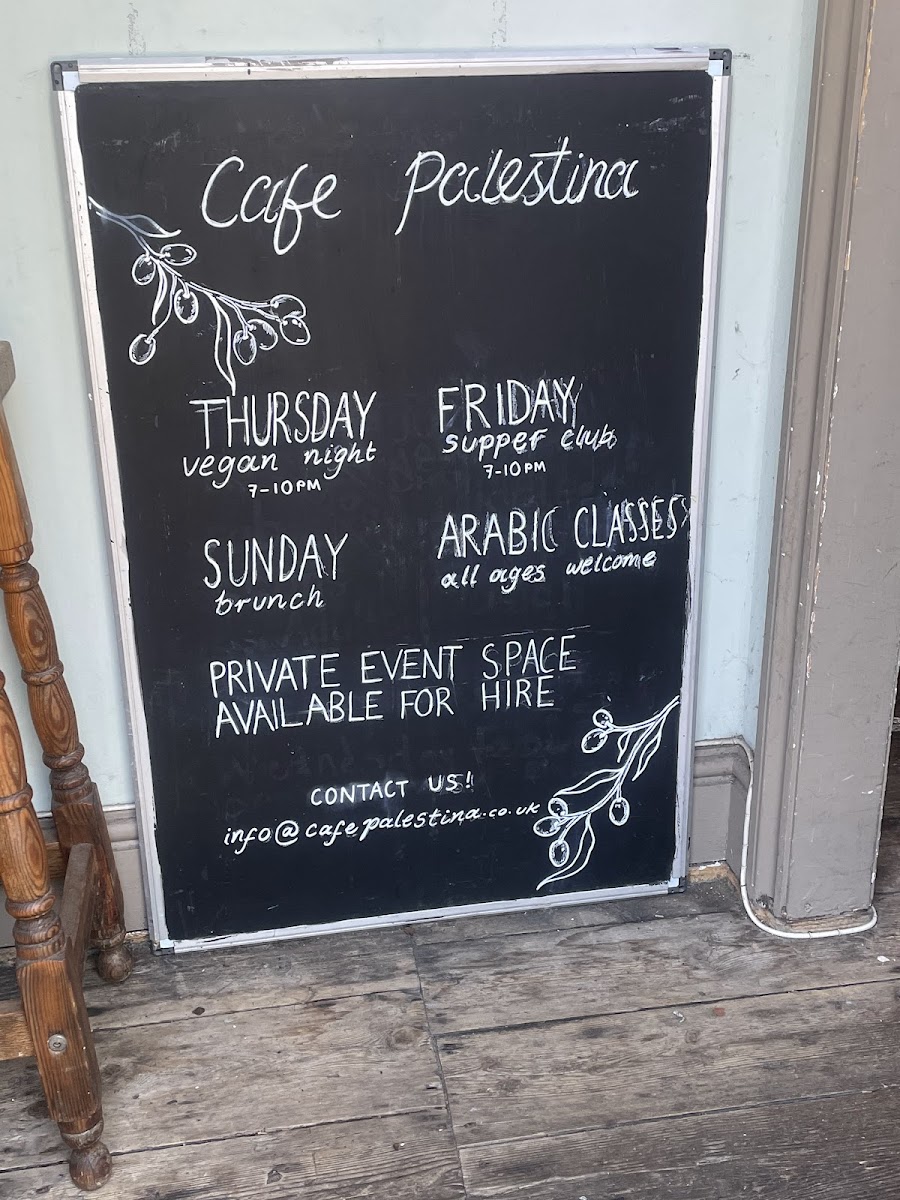 Cafe Palestina
THURSDAY
vegan night
7-10PM
FRIDAY
supper club
7-10PM
SUNDAY
brunch
ARABIC CLASSES
all ages welcome
PRIVATE EVENT SPACE
AVAILABLE FOR HIRE
CONTACT US!
info@cafepalestina.co.uk